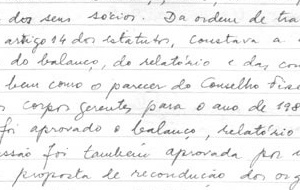 dos seus sócios. Da ordem de tra
artigo 14 dos estatutos, constava a
do balanço, do relatório e das con
bem como o parecer do Conselho Fisc
corpos gerentes para o ano de 198
foi aprovado o balanço, relatório
ssão foi também aprovada por
proposta de recondução dos org